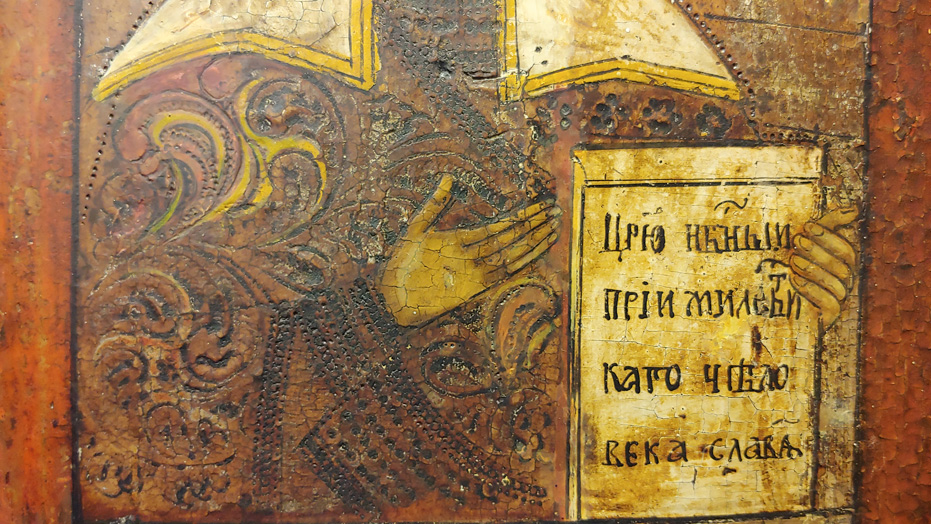 Црю нб҃ныи
прїи милоⷭтⷡи
каго чѣло
века слава